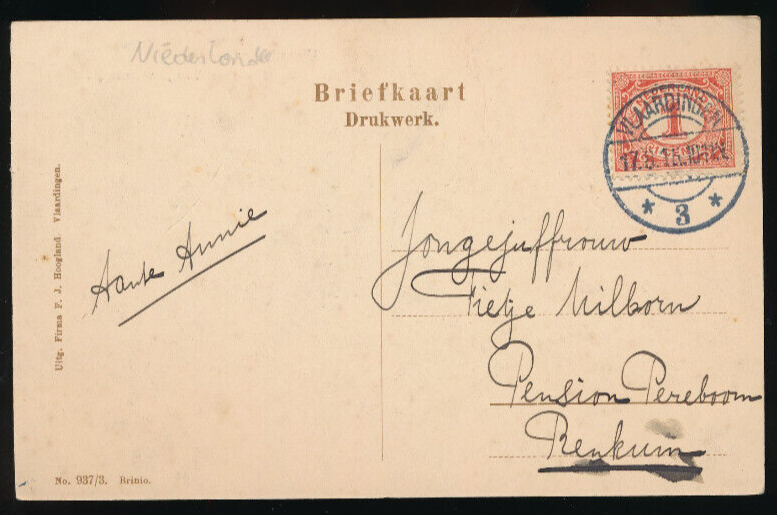 Niederlande
Briefkaart
Drukwerk.
VLAARDINGEN
1
17.8.15.10-12V
* 3 *
Uitg. Firma F. J. Hoogland. Vlaardingen.
Tante Annie
Jongejuffrouw
Tietje Milborn
Pension Pereboom
Renkum
No. 937/3. Brinio.